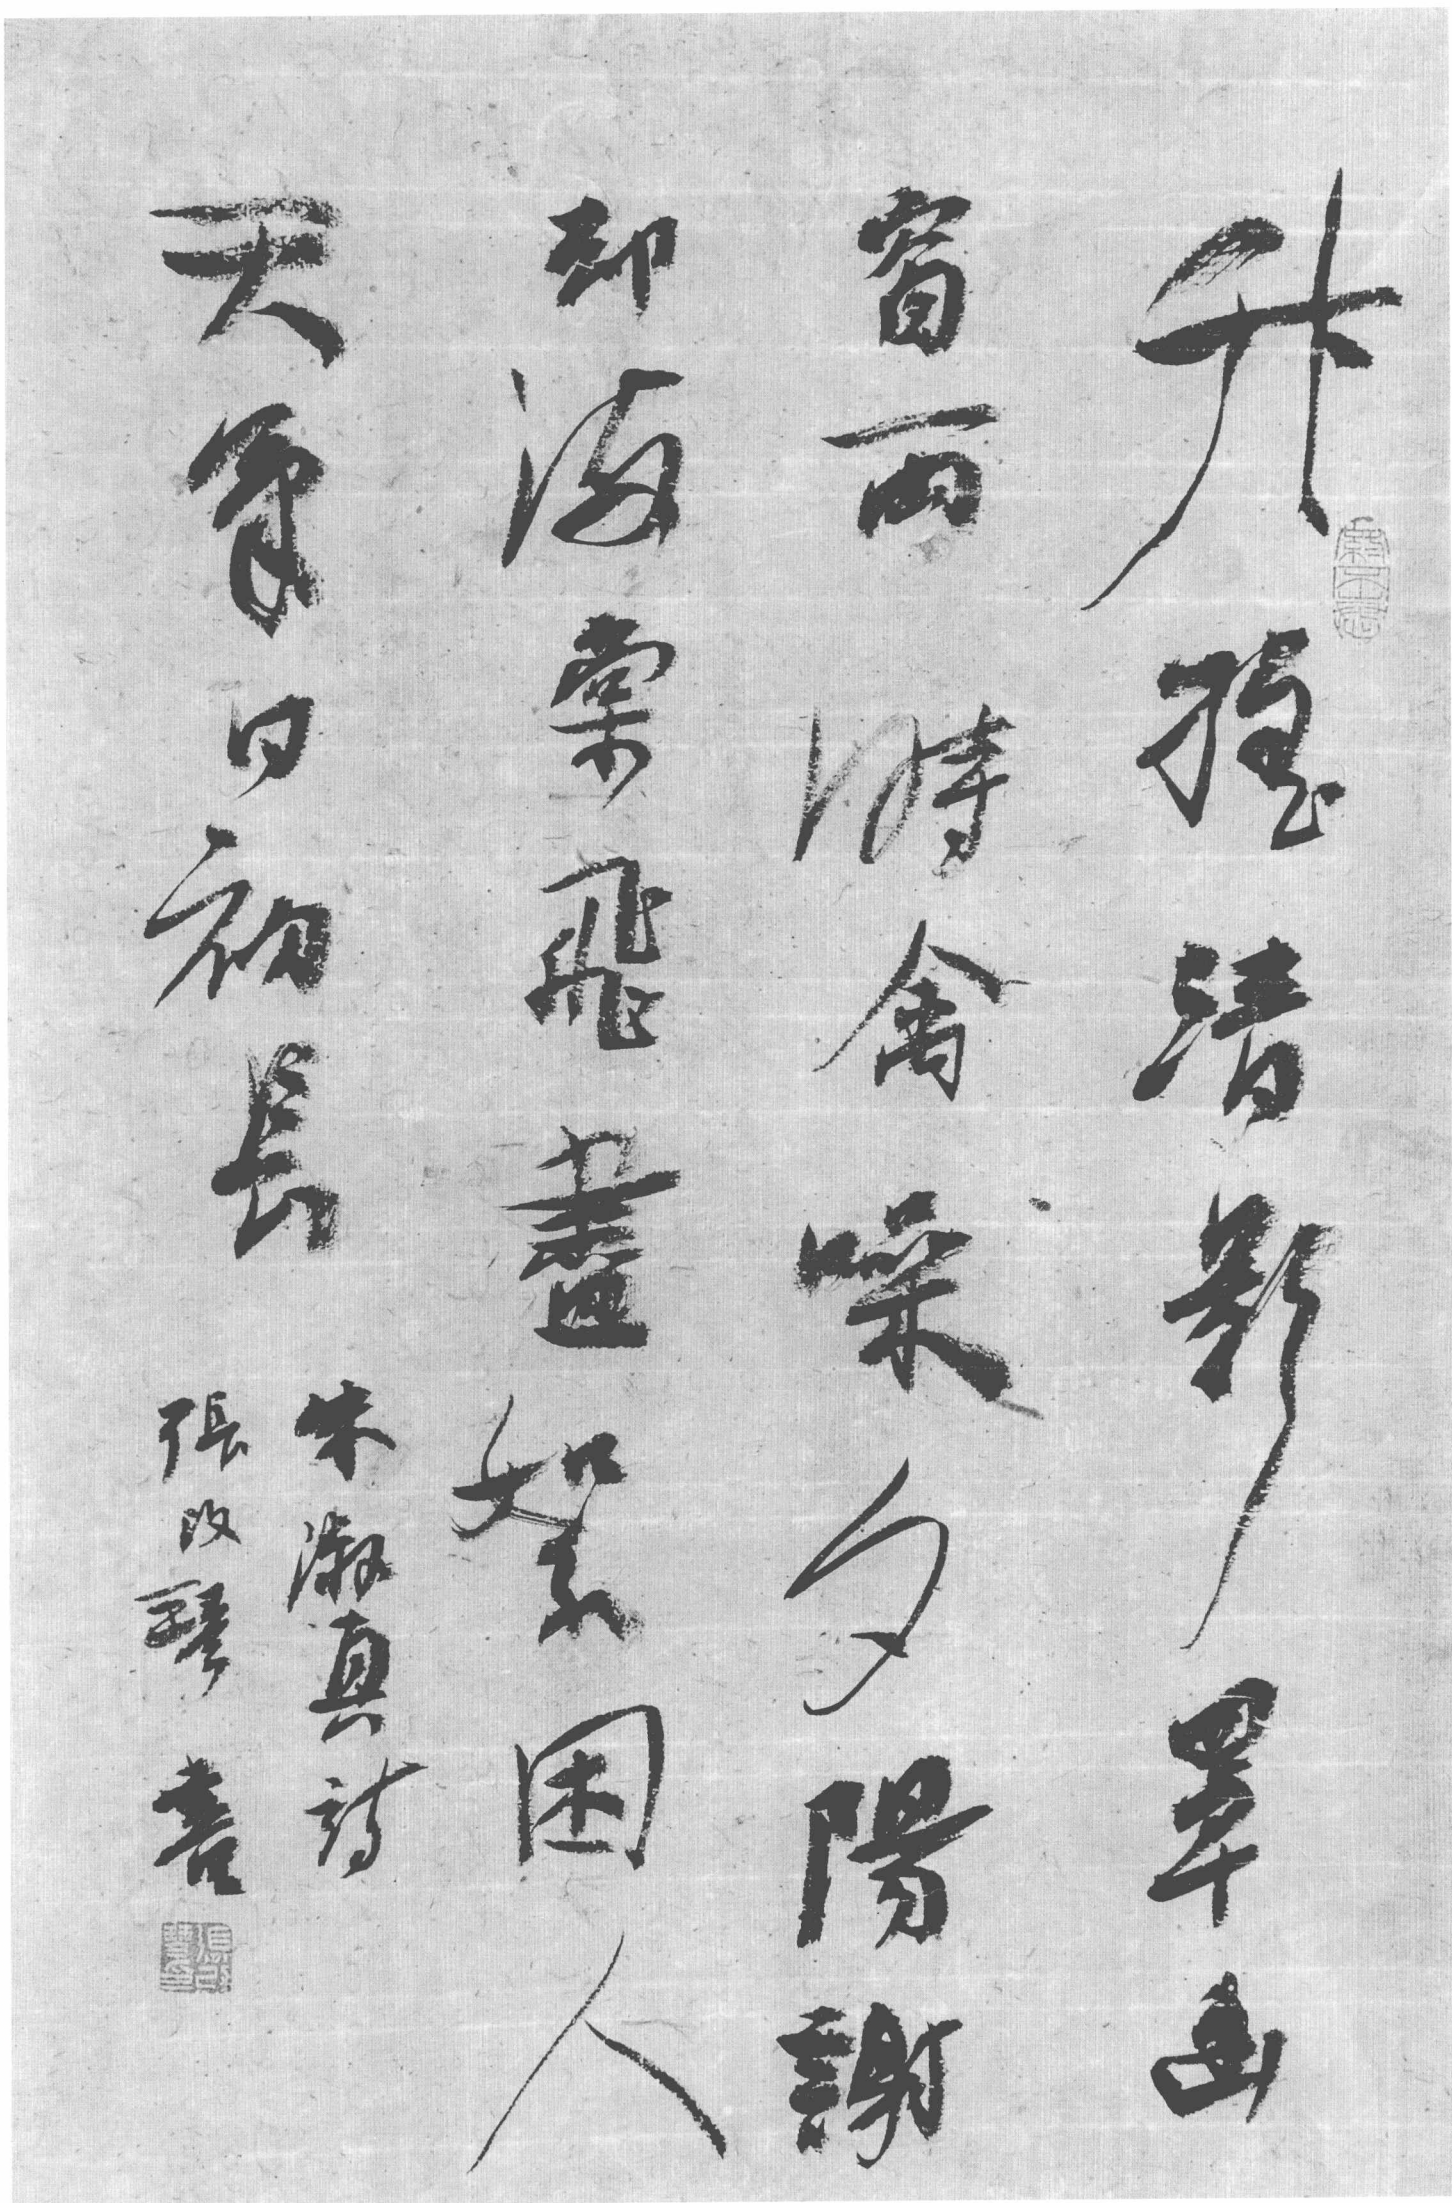 竹搖清影罩幽
窗兩時禽噪夕陽謝
却海棠飛盡絮困人
天氣日初長
朱淑真詩
張改琴書